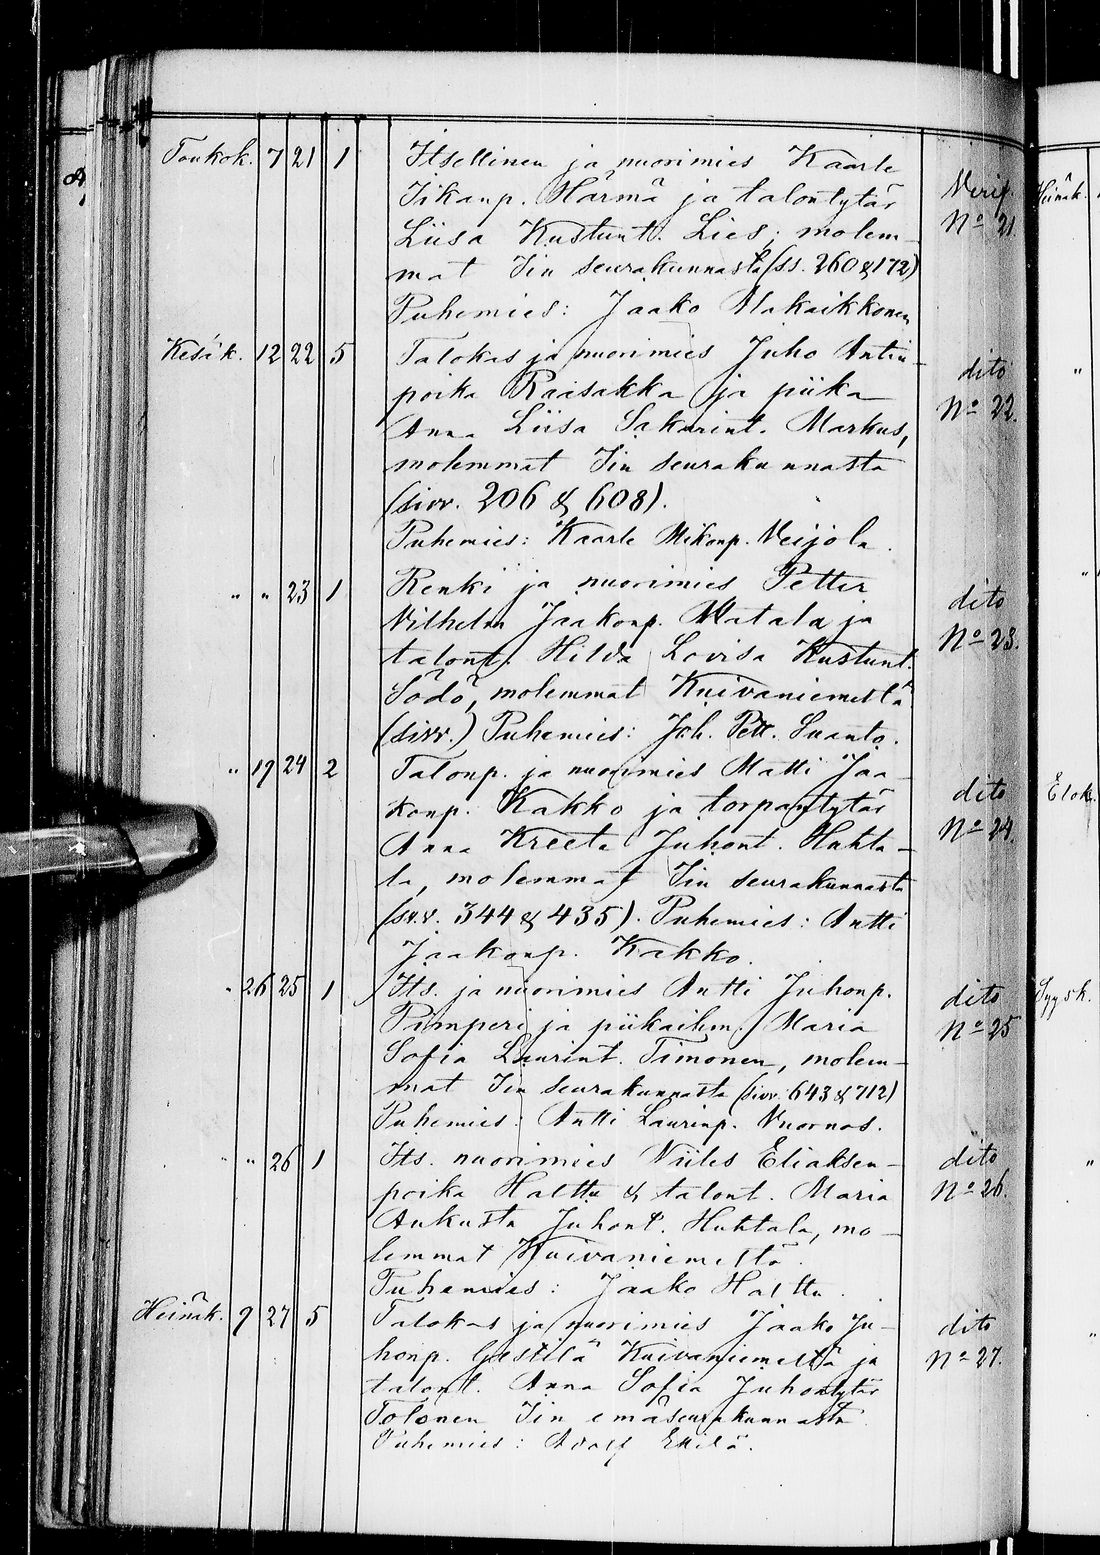 Toukok. 7 21 1 Itsellinen ja nuorimies Kaarle
Iikanp. Härmä ja talontytär Verif.
Liisa Kustunt. Lies; molem- No 21
mat Iin seurakunnasta (ss. 260 & 172)
Puhemies: Jaako Alakaikkonen
Kesäk. 12 22 5 Talokas ja nuorimies Juho Antin- dito
poika Raasakka ja piika No 22.
Anna Liisa Sakarint. Markus,
molemmat Iin seurakunnasta
(sivv. 206 & 608).
Puhemies: Kaarle Mikonp. Veijola.
" " 23 1 Renki ja nuorimies Petter dito
Vilhelm Jaakonp. Matala ja No 23.
talont. Hilda Lovisa Kustunt.
Södö, molemmat Kuivaniemeltä
(sivv.) Puhemies: Joh. Pett. Suanto.
" 19 24 2 Talonp. ja nuorimies Matti Jaa- dito
konp. Kakko ja torpantytär No 24.
Anna Kreeta Juhont. Huhta-
la, molemmat Iin seurakunnasta
(sivv. 344 & 435). Puhemies: Antti
Jaakonp. Kakko.
" 26 25 1 Its. ja nuorimies Antti Juhonp. dito
Pimperi ja piikaihm. Maria No 25
Sofia Laurint. Timonen, molem-
mat Iin seurakunnasta (sivv. 643 & 712)
Puhemies: Antti Laurinp. Vuornos.
" " 26 1 Its. nuorimies Niiles Eliaksen- dito
poika Halttu & talont. Maria No 26.
Aukusta Juhont. Huhtala, mo-
lemmat Kuivaniemeltä.
Puhemies: Jaako Halttu.
Heinäk. 9 27 5 Talokas ja nuorimies Jaako Ju- dito
honp. Gästilä Kuivaniemeltä ja No 27.
talont. Anna Sofia Juhontytär
Tolonen Iin emäseurakunnasta.
Puhemies: Adolf
Heinäk.
"
"
Elok.
Syysk.
"
"